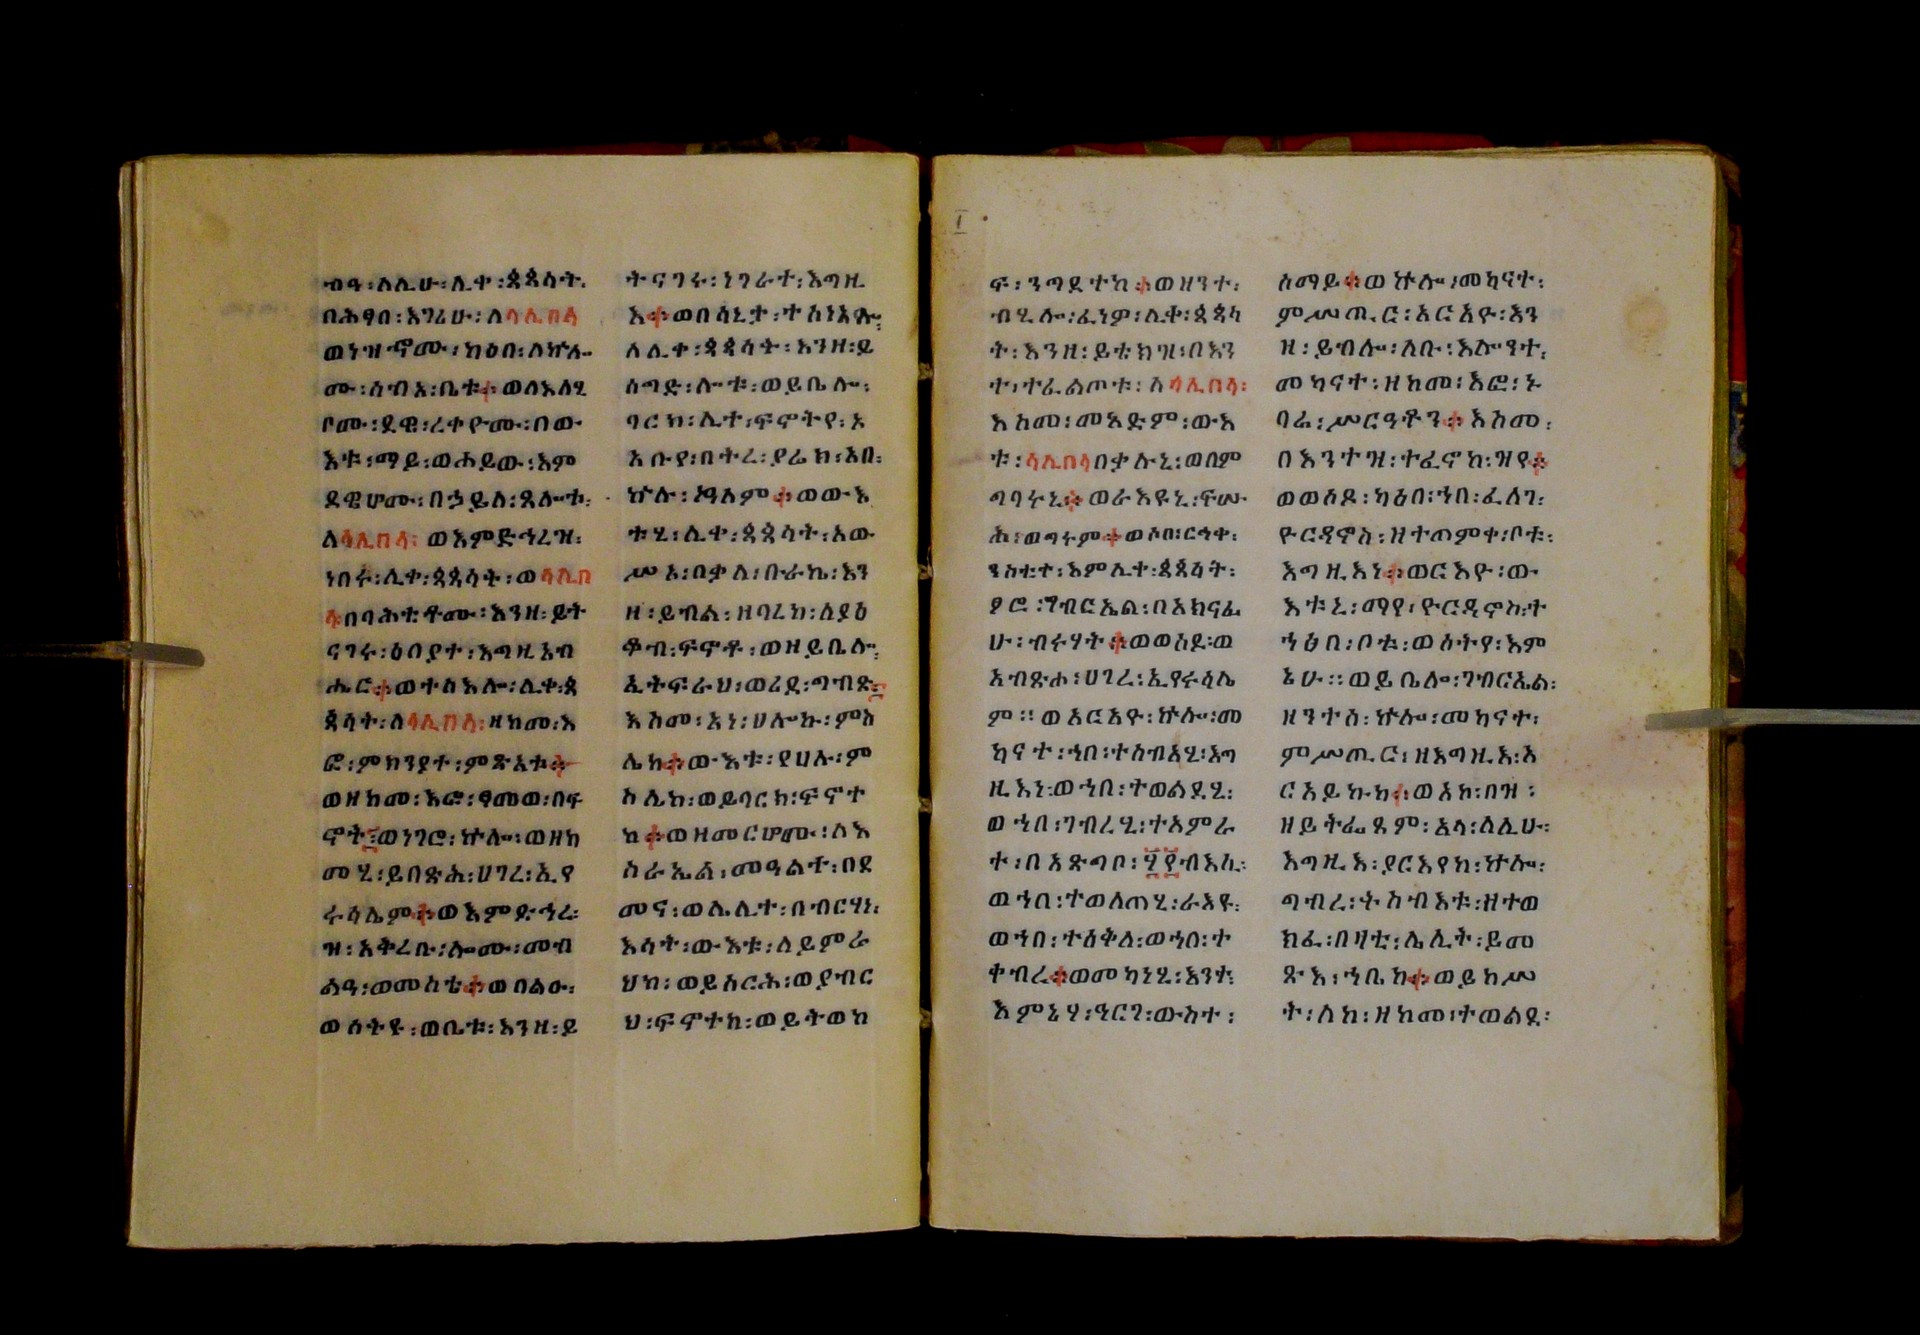 ብዓ፡ለሊሁ፡ሊቀ፡ጳጳሳት፡
በሕፃበ፡እገሪሁ፡ለላሊበላ
ወነዝኆሙ፡ከዕበ፡ለኵሎ
ሙ፡ሰብአ፡ቤቱ፨ወለእለሂ
ቦሙ፡ደዌ፡ረቀዮሙ፡በው
እቱ፡ማይ፡ወሐይው፡እም
ደዌሆሙ፡በኃይለ፡ጸሎቱ፡
ለላሊበላ፡ወእምድኅረዝ፡
ነበሩ፡ሊቀ፡ጳጳሳት፡ወላሊበ
ላ፡በባሕቲቶሙ፡እንዘ፡ይት
ናገሩ፡ዕበያተ፡እግዚአብ
ሔር፨ወተስእሎ፡ሊቀ፡ጳ
ጳሳት፡ለላሊበላ፡ዘከመ፡እ
ፎ፡ምክንያተ፡ምጽአቱ፨
ወዘከመ፡እፎ፡ፃመወ፡በፍ
ኖት፤ወነገሮ፡ኵሎ፡ወዘከ
መሂ፡ይበጽሕ፡ሀገረ፡ኢየ
ሩሳሌም፨ወእምድኅረ፡
ዝ፡አቅረቡ፡ሎሙ፡መብ
ልዓ፡ወመስቴ፨ወበልዑ፡
ወሰትዩ፡ወቤቱ፡እንዘ፡ይ
ትናገሩ፡ነገራተ፡እግዚ
እ፨ወበሳኒታ፡ተስነአሎ፡
ለሊቀ፡ጳጳሳት፡እንዘ፡ይ
ሰግድ፡ሎቱ፡ወይቤሎ፡
ባርክ፡ሊተ፡ፍኖትየ፡ኦ
አቡየ፡በትረ፡ያሬክ፡አበ፡
ኵሉ፡ዓለም፨ወውእ
ቱሂ፡ሊቀ፡ጳጳሳት፡አው
ሥአ፡በቃለ፡ቡራኬ፡እን
ዘ፡ይብል፡ዘባረከ፡ለያዕ
ቆብ፡ፍኖቶ፡ወዘይቤሎ፡
ኢትፍራህ፡ወሪደ፡ግብጽ፤
እስመ፡አነ፡ሀሎኩ፡ምስ
ሌከ፨ውእቱ፡የሀሉ፡ም
ስሌከ፡ወይባርክ፡ፍኖተ
ከ፨ወዘመርሆሙ፡ለእ
ስራኤል፡መዓልተ፡በደ
መና፡ወሌሊተ፡በብርሃነ፡
እሳት፡ውእቱ፡ለይምራ
ህከ፡ወይሰርሕ፡ወያብር
ህ፡ፍኖተከ፡ወይትወከ
I
ፍ፡ንግደተከ፨ወዘንተ፡
ብሂሎ፡ፈነዎ፡ሊቀ፡ጳጳሳ
ት፡እንዘ፡ይቴክዝ፡በእን
ተ፡ተፈልጦቱ፡ለላሊበላ፡
እስመ፡መአድም፡ውእ
ቱ፡ላሊበላበቃሉኒ፡ወበም
ግባሩኒ፨ወራእዩኒ፡ፍሡ
ሕ፡ወግሩም፨ወሶበ፡ርኅቀ፡
ንስቲተ፡እምሊተ፡ጳጳሳት፡
ፆሮ፡ገብርኤል፡በአክናፊ
ሁ፡ብሩሃት፨ወወሰዶ፡ወ
አብጽሖ፡ሀገረ፡ኢየሩሳሌ
ም፡፡ወአርአዮ፡ኵሎ፡መ
ካናተ፡ኀበ፡ተሰብአሂ፡እግ
ዚእነ፡ወኀበ፡ተወልደሂ፡
ወኀበ፡ገብረሂ፡ተአምራ
ተ፡በአጽጋቦ፡፶፻ብእሲ፡
ወኀበ፡ተወለጠሂ፡ራእዩ፡
ወኀበ፡ተሰቅለ፡ወኀበ፡ተ
ቀብረ፨ወመካነሂ፡እንተ፡
እምኔሃ፡ዓርገ፡ውስተ፡
ሰማይ፨ወኵሎ፡መካናተ፡
ምሥጢር፡አርአዮ፡እን
ዘ፡ይብሎ፡ለቡ፡እሎንተ፡
መካናተ፡ዘከመ፡እፎ፡ኑ
ባሬ፡ሥርዓቶን፨እስመ፡
በእንተዝ፡ተፈኖከ፡ዝየ፨
ወወሰዶ፡ካዕበ፡ኀበ፡ፈለገ፡
ዮርዳኖስ፡ዘተጠምቀ፡ቦቱ፡
እግዚእነ፨ወርእዮ፡ው
እቱኒ፡ማየ፡ዮርዳኖስ፡ት
ኀፅበ፡ቦቱ፡ወሰትየ፡እም
ኔሁ፡፡ወይቤሎ፡ገብርኤል፡
ዘንተስ፡ኵሎ፡መካናተ፡
ምሥጢር፡ዘእግዚእ፡አ
ርአይኩከ፨ወአኮ፡በዝ፡
ዘይትፌጸም፡አላ፡ለሊሁ፡
እግዚእ፡ያርእየከ፡ኵሎ፡
ግብረ፡ትስብእቱ፡ዘተወ
ክፈ፡በዛቲ፡ሌሊት፡ይመ
ጽእ፡ኀቤከ፨ወይከሥ
ት፡ለከ፡ዘከመ፡ተወልደ፡